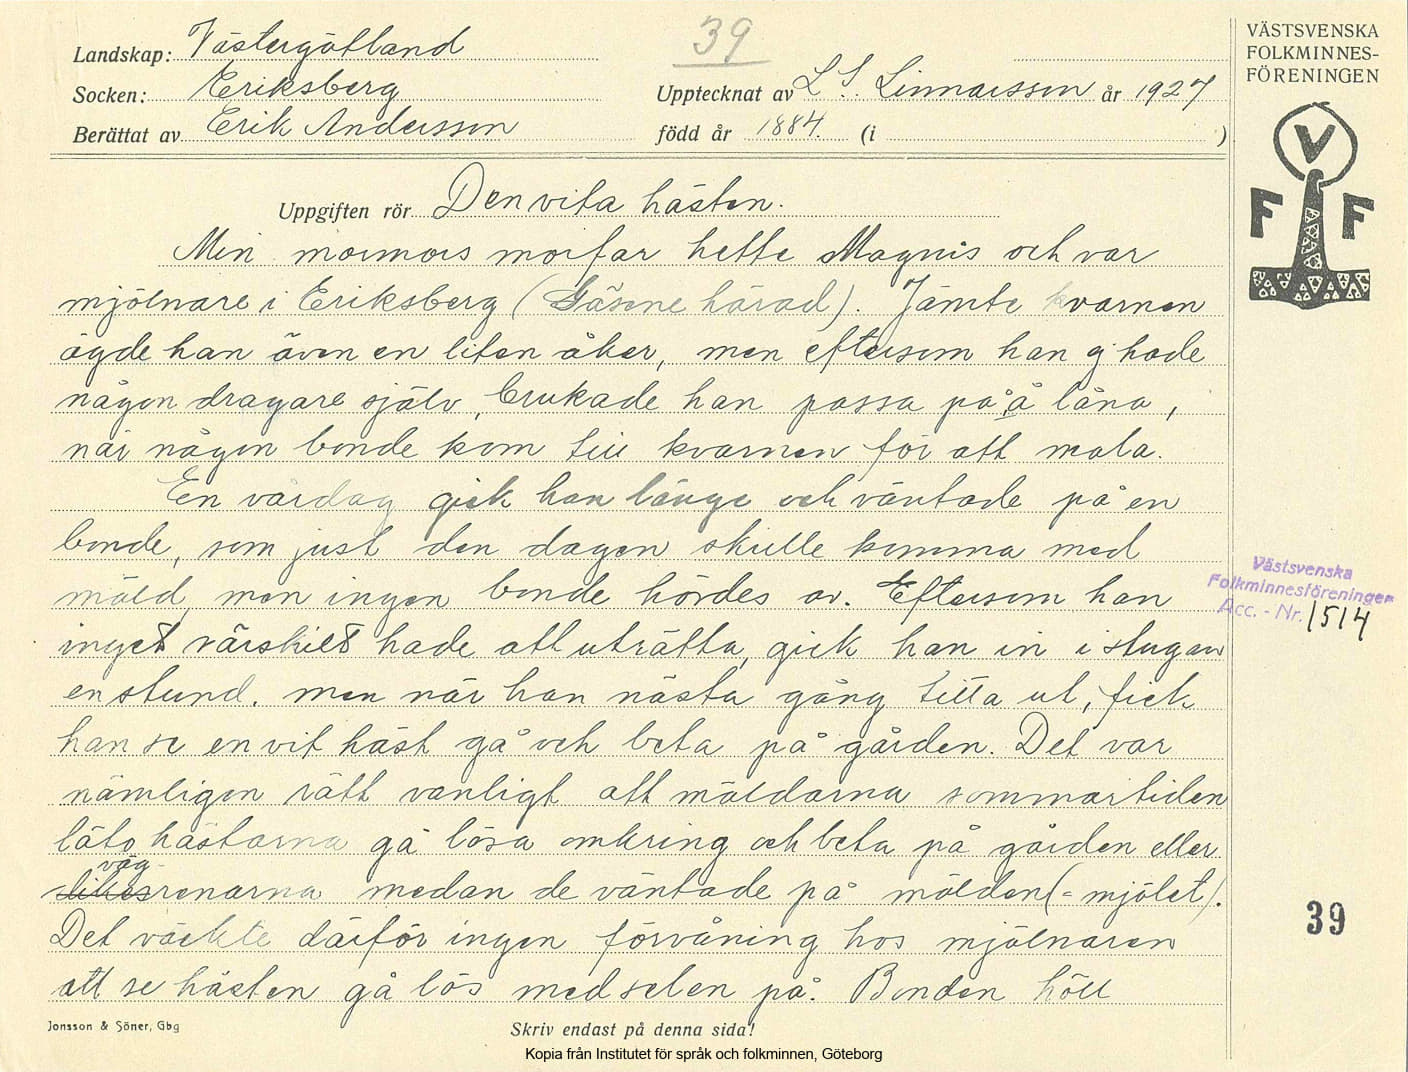 39
Landskap: Västergötland
Socken: Eriksberg
Berättat av Erik Andersson
Upptecknat av L. S. Linnarsson år 1927
född år 1884. (i )
VÄSTSVENSKA
FOLKMINNES-
FÖRENINGEN
V
F F
Uppgiften rör Den vita hästen.
Min mormors morfar hette Magnis och var
mjölnare i Eriksberg (Gäsene härad). Jämte kvarnen
ägde han även en liten åker, men eftersom han ej hade
någon dragare själv, brukade han passa på å låna,
när någon bonde kom till kvarnen för att mala.
En vårdag gick han länge och väntade på en
bonde, som just den dagen skulle komma med
mäld, men ingen bonde hördes av. Eftersom han
inget särskilt hade att uträtta, gick han in i stugan
en stund. men när han nästa gång titta ut, fick
han se en vit häst gå och beta på gården. Det var
nämligen rätt vanligt att mäldarna sommartiden
läto hästarna gå lösa omkring och beta på gården eller
väg-
renarna medan de väntade på mälden (= mjölet).
Det väckte därför ingen förvåning hos mjölnaren
att se hästen gå lös med selen på. Bonden höll
Västsvenska
Folkminnesföreningen
Acc. - Nr. 1514
39
Jonsson & Söner, Gbg
Skriv endast på denna sida!
Kopia från Institutet för språk och folkminnen, Göteborg